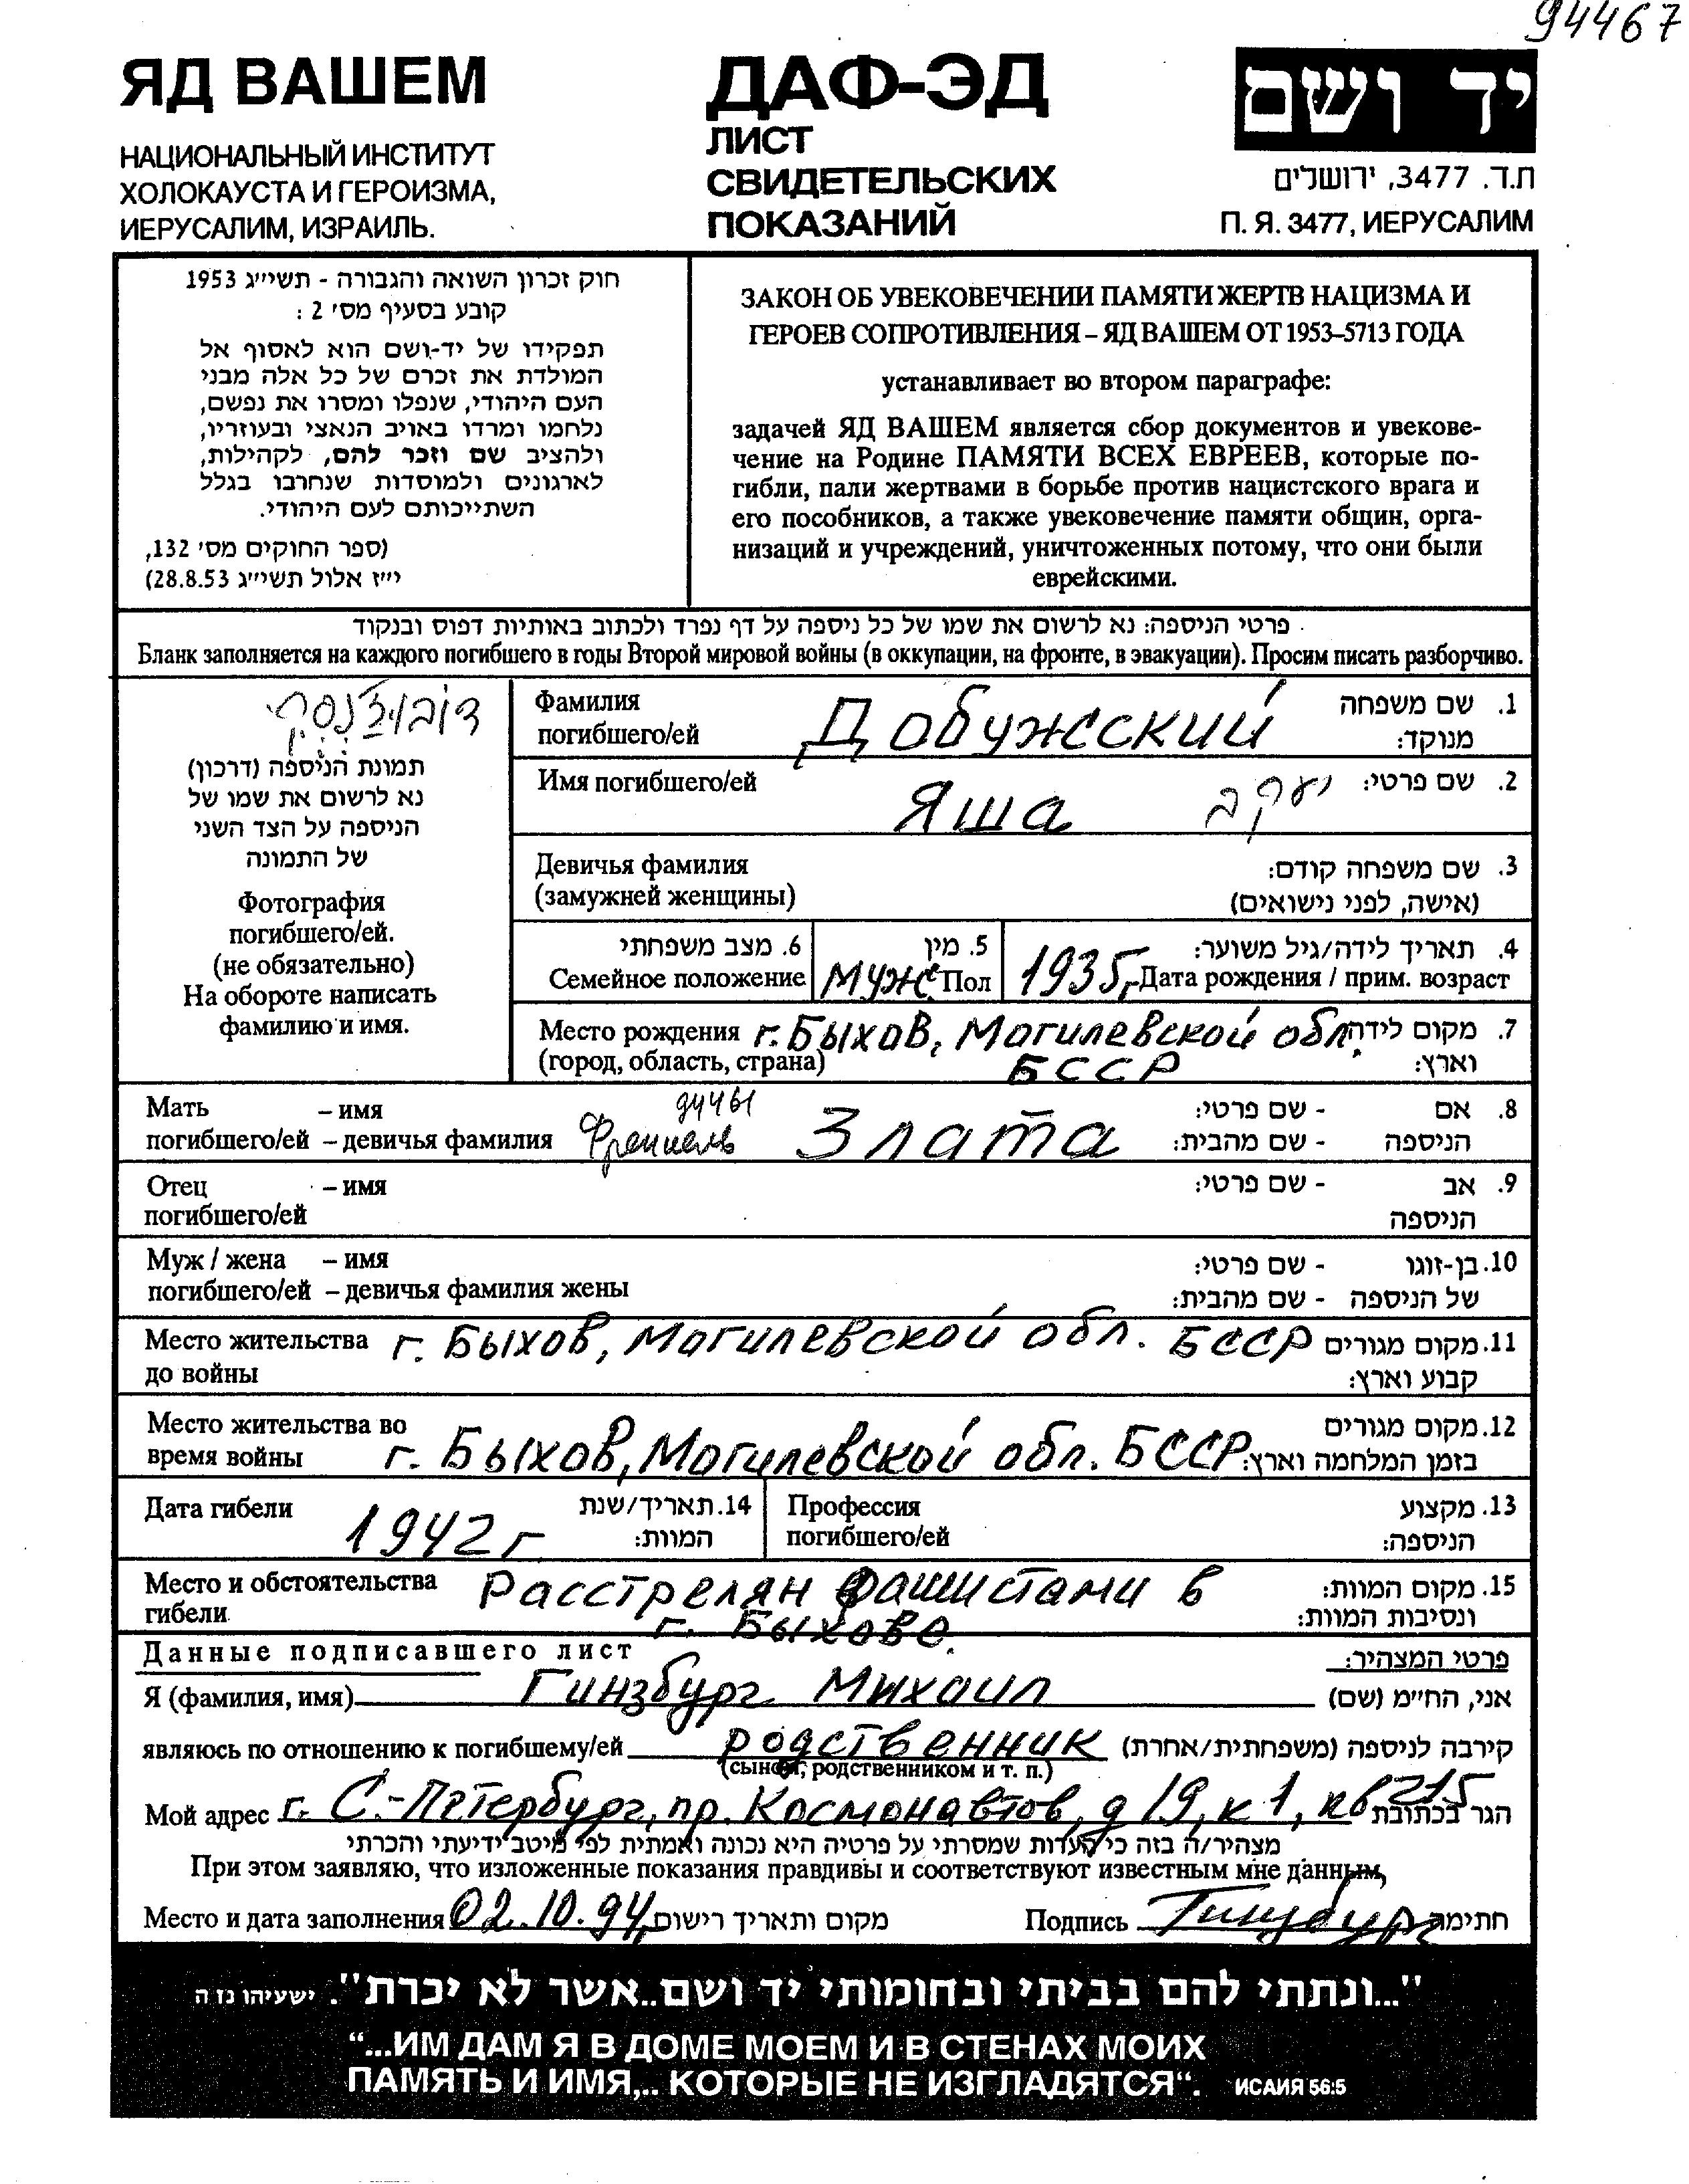 94467
ЯД ВАШЕМ
НАЦИОНАЛЬНЫЙ ИНСТИТУТ
ХОЛОКАУСТА И ГЕРОИЗМА,
ИЕРУСАЛИМ, ИЗРАИЛЬ.
ДАФ-ЭД
ЛИСТ
СВИДЕТЕЛЬСКИХ
ПОКАЗАНИЙ
יד ושם
ת.ד. 3477, ירושלים
П. Я. 3477, ИЕРУСАЛИМ
חוק זכרון השואה והגבורה - תשי״ג 1953
קובע בסעיף מס׳ 2 :
תפקידו של יד-ושם הוא לאסוף אל
המולדת את זכרם של כל אלה מבני
העם היהודי, שנפלו ומסרו את נפשם,
נלחמו ומרדו באויב הנאצי ובעוזריו,
ולהציב שם וזכר להם, לקהילות,
לארגונים ולמוסדות שנחרבו בגלל
השתייכותם לעם היהודי.
(ספר החוקים מס׳ 132,
י״ז אלול תשי״ג 28.8.53)
ЗАКОН ОБ УВЕКОВЕЧЕНИИ ПАМЯТИ ЖЕРТВ НАЦИЗМА И
ГЕРОЕВ СОПРОТИВЛЕНИЯ – ЯД ВАШЕМ ОТ 1953–5713 ГОДА
устанавливает во втором параграфе:
задачей ЯД ВАШЕМ является сбор документов и увекове-
чение на Родине ПАМЯТИ ВСЕХ ЕВРЕЕВ, которые по-
гибли, пали жертвами в борьбе против нацистского врага и
его пособников, а также увековечение памяти общин, орга-
низаций и учреждений, уничтоженных потому, что они были
еврейскими.
פרטי הניספה: נא לרשום את שמו של כל ניספה על דף נפרד ולכתוב באותיות דפוס ובנקוד
Бланк заполняется на каждого погибшего в годы Второй мировой войны (в оккупации, на фронте, в эвакуации). Просим писать разборчиво.
תמונת הניספה (דרכון)
נא לרשום את שמו של
הניספה על הצד השני
של התמונה
Фотография
погибшего/ей.
(не обязательно)
На обороте написать
фамилию и имя.
Фамилия
погибшего/ей
Добужсский
1. שם משפחה
מנוקד:
Имя погибшего/ей
Яша
יעקב
2. שם פרטי:
Девичья фамилия
(замужней женщины)
3. שם משפחה קודם:
(אישה, לפני נישואים)
6. מצב משפחתי
Семейное положение
5. מין
Муж Пол
4. תאריך לידה/גיל משוער:
1935г. Дата рождения / прим. возраст
Место рождения г. Быхов, Могилевской обл.
7. מקום לידה
(город, область, страна)
БССР
וארץ:
Мать – имя
94461
8. אם - שם פרטי:
погибшего/ей – девичья фамилия Френкель Злата
הניספה - שם מהבית:
Отец – имя
9. אב - שם פרטי:
погибшего/ей
הניספה
Муж / жена – имя
10. בן-זוגו - שם פרטי:
погибшего/ей – девичья фамилия жены
של הניספה - שם מהבית:
Место жительства г. Быхов, Могилевской обл. БССР
11. מקום מגורים
до войны
קבוע וארץ:
Место жительства во
12. מקום מגורים
время войны г. Быхов, Могилевской обл. БССР
בזמן המלחמה וארץ:
Дата гибели 1942г
14. תאריך/שנת
המוות:
Профессия
погибшего/ей
13. מקצוע
הניספה:
Место и обстоятельства Расстрелян фашистами в
15. מקום המוות:
гибели г. Быхове.
ונסיבות המוות:
Данные подписавшего лист
פרטי המצהיר:
Я (фамилия, имя) Гинзбург Михаил
אני, החי״מ (שם)
являюсь по отношению к погибшему/ей родственник
קירבה לניספה (משפחתית/אחרת)
(сыном, родственником и т. п.)
Мой адрес г. С.-Петербург, пр. Космонавтов, д 19, к 1, кв 215
הגר בכתובת
מצהיר/ה בזה כי העדות שמסרתי על פרטיה היא נכונה ואמתית לפי מיטב ידיעתי והכרתי
При этом заявляю, что изложенные показания правдивы и соответствуют известным мне данным,
Место и дата заполнения 02.10.94
מקום ותאריך רישום
Подпись Гинзбург
חתימה
"...ונתתי להם בביתי ובחומותי יד ושם..אשר לא יכרת". ישעיהו נז ה
“...ИМ ДАМ Я В ДОМЕ МОЕМ И В СТЕНАХ МОИХ
ПАМЯТЬ И ИМЯ,.. КОТОРЫЕ НЕ ИЗГЛАДЯТСЯ“. ИСАИЯ 56:5